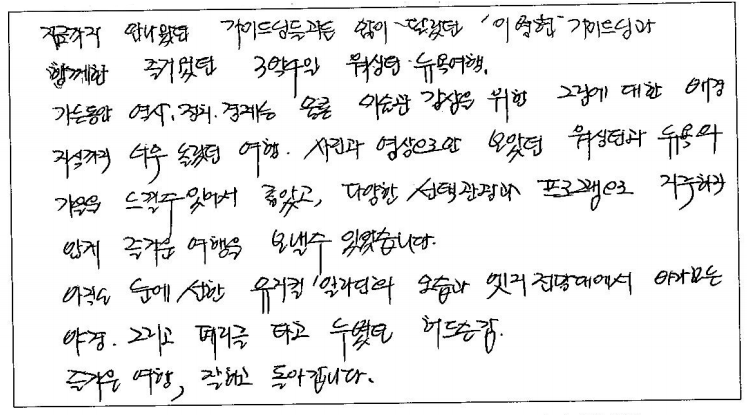 지금까지 만나왔던 가이드님들과는 많이 달랐던 '이영현' 가이드님과
함께한 즐거웠던 3박4일 워싱턴·뉴욕여행.
가는동안 역사, 정치, 경제는 물론 미술관 감상을 위한 그림에 대한 배경
지식까지 너무 놀랐던 여행. 사진과 영상으로만 보았던 워싱턴과 뉴욕의
가을을 느낄수 있어서 좋았고, 다양한 선택관광과 프로그램으로 지루하지
않게 즐거운 여행을 보낼수 있었습니다.
아직도 눈에 선한 뮤지컬 '알라딘'의 모습과 엣지 전망대에서 바라보는
야경. 그리고 페리를 타고 누볐던 허드슨강.
즐거운 여행, 잘하고 돌아갑니다.